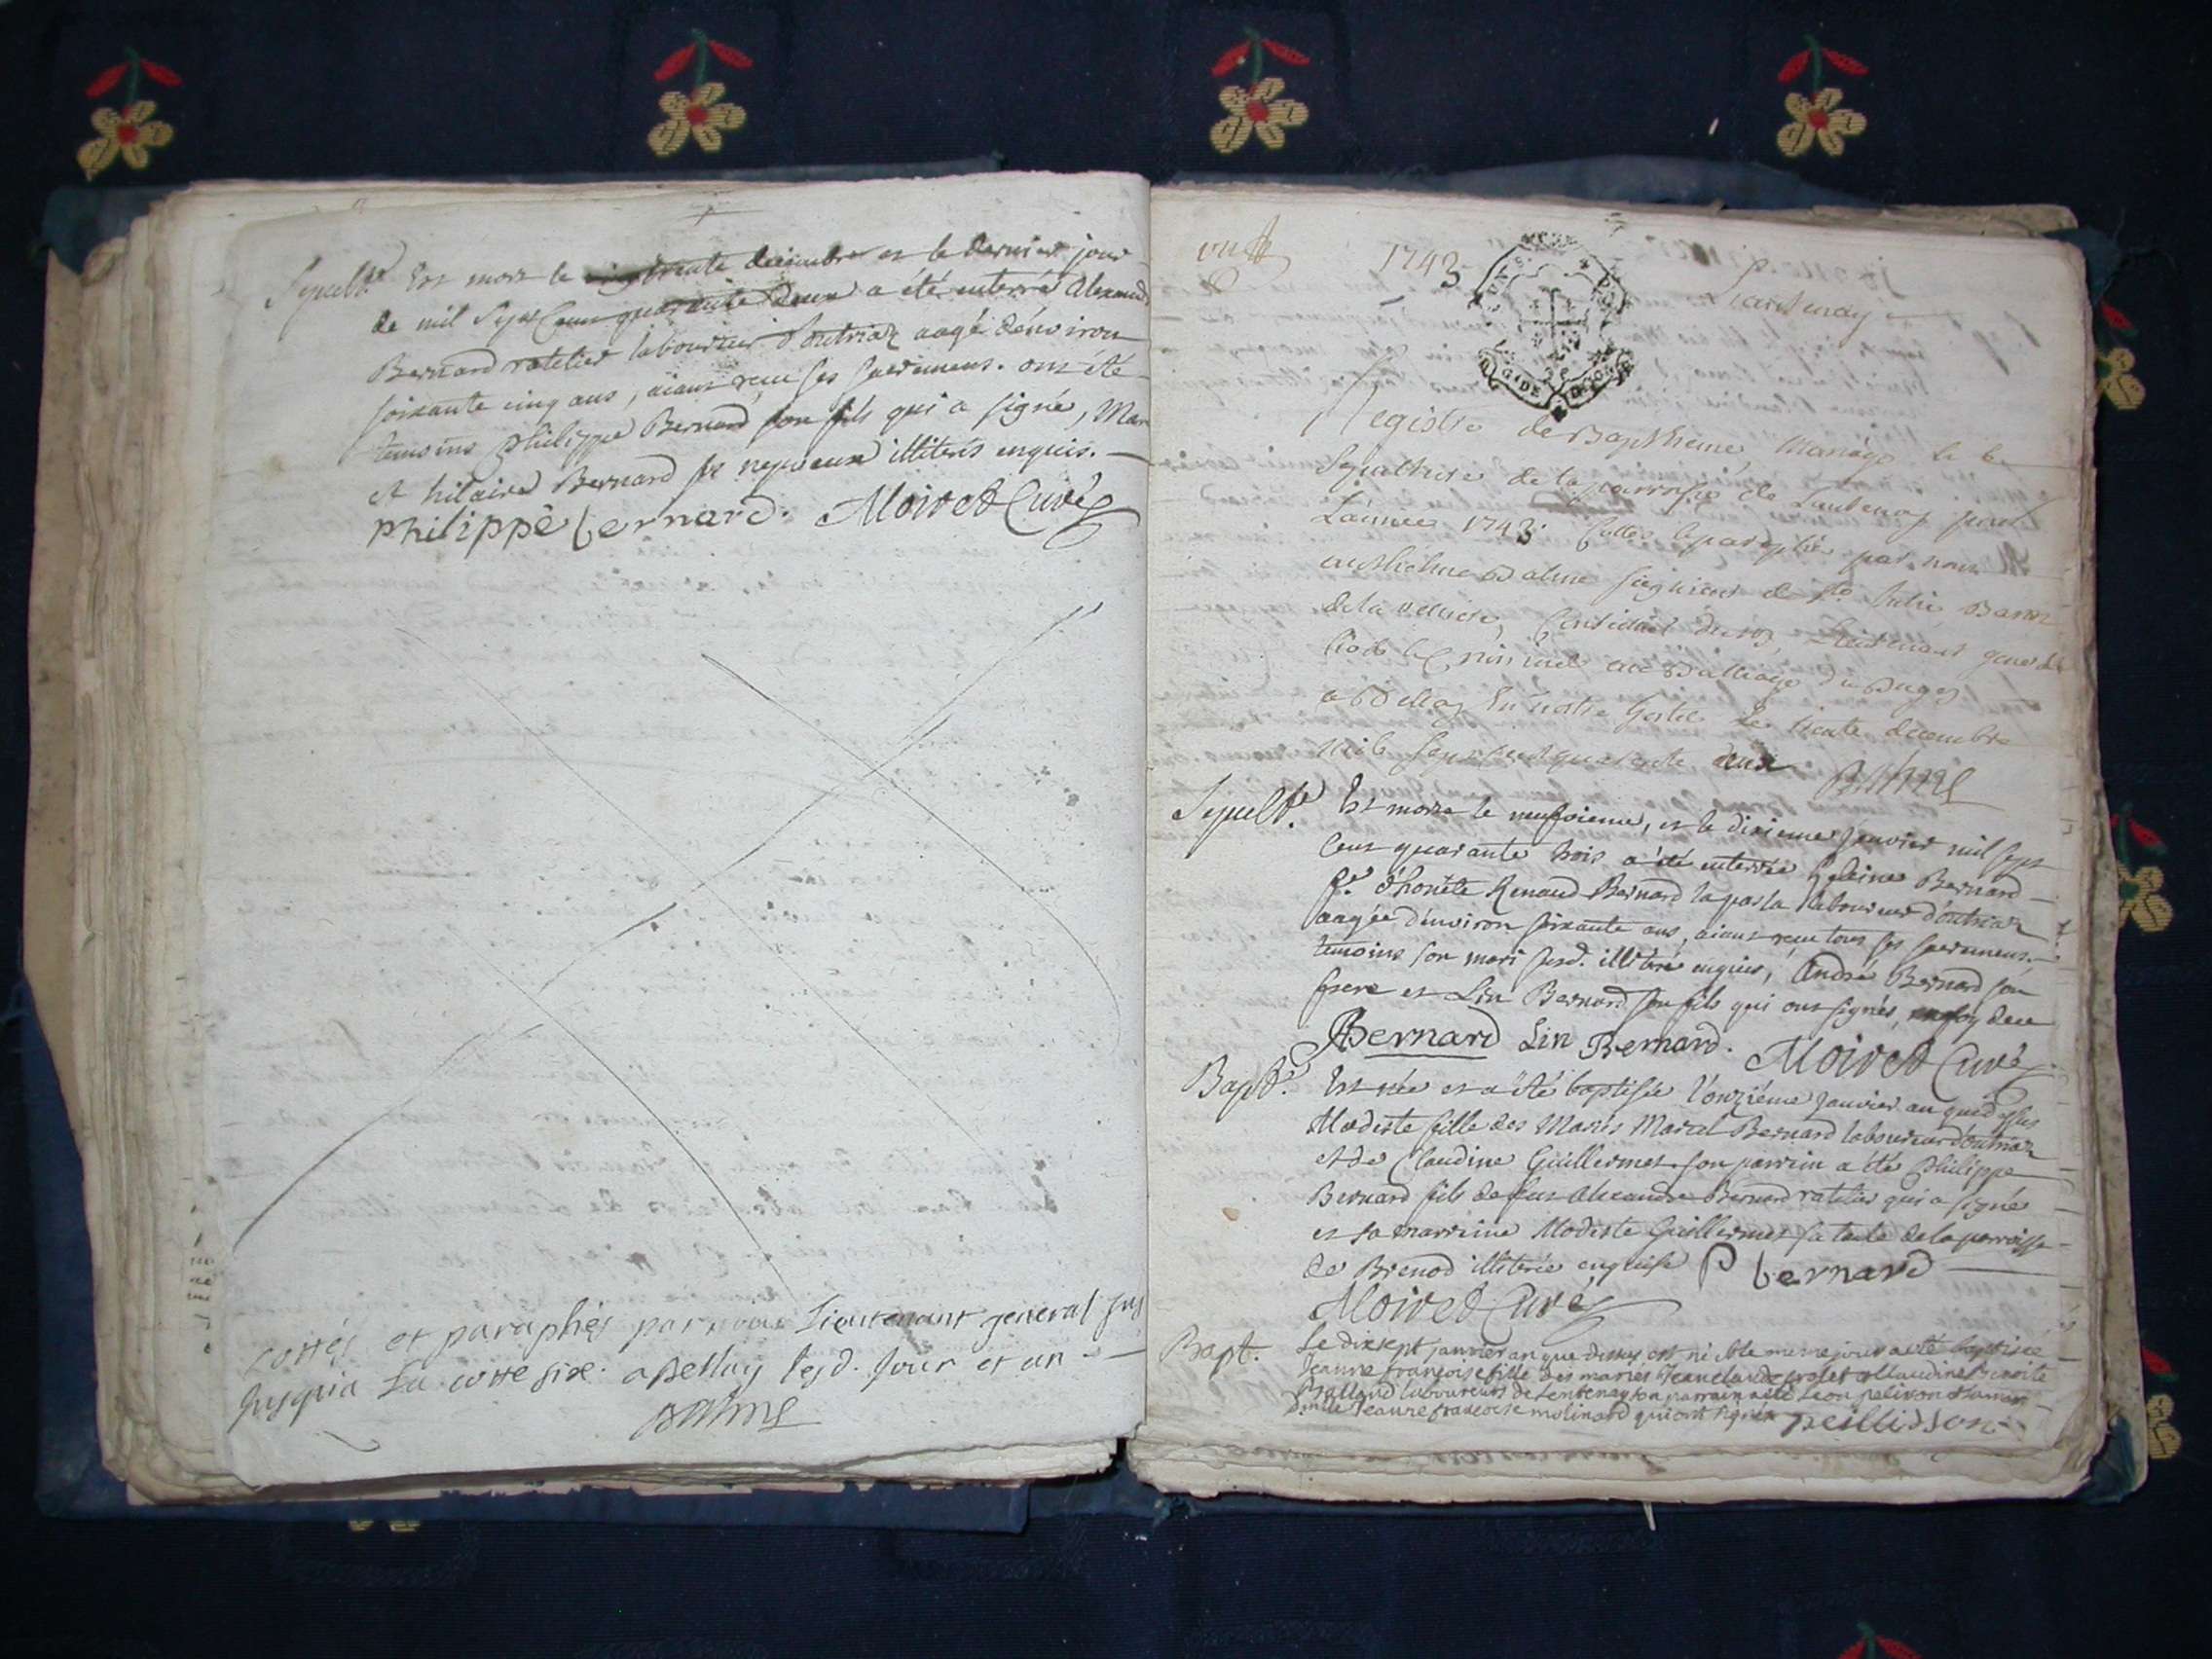 Sepult.re Est mort le trente decembre et le dernier jour
de mil Sept Cent quarante deux a été enterré Alexand
Bernard ratelier laboureur d'outriaz aagé d'environ
soixante cinq ans, aiant reçu ses sacremens. ont été
temoins philippe Bernard son fils qui a signé, Mar
et hilaire Bernard ses nepveux illiterés enquis.
philippe bernard. Moiret Curé
cottés et paraphés par nous Lieutenant general sus
jusqu'a La cotte six. a Bellay lesd. jour et an
Balme
1743
Lantenay
Registre de Baptheme, Mariage et
Sepulture de la parroisse de Lantenay pour
L'année 1743. Cottés et paraphé par nous
anthelme Balme seigneur de Ste Julie Baron
de la velliere, Conseiller du roy, Lieutenant general
Civil et Criminel au Balliage du Bugey
a Bellay En notre hotel Le trente decembre
mil sept cent quarante deux Balme
Sepult.re Est morte le neufvieme, et le dixieme janvier mil sept
Cent quarante trois a été enterrée heleine Bernard
f.e d'honéte Renaud Bernard la laboureur d'outriaz
aagée d'environ soixante ans, aiant reçu tous ses sacremens.
temoins son mari susd. illitéré enquis, André Bernard son
frere et Lin Bernard son fils qui ont signés, en foy de ce
ABernard Lin Bernard. Moiret Curé
Bapt.e Est née et a été baptisée l'onzième janvier an que dessus
Modeste fille des Mariés Marcel Bernard laboureur d'outriaz
et de Claudine Guillermet. son parrein a été Philippe
Bernard fils de feu Alexandre Bernard ratelier qui a signé
et sa marreine Modeste Guillermet sa tante de la parroisse
de Brenod illiterée enquise P bernard
Moiret Curé
Bapt. Le dixsept janvier an que dessus est né et le meme jour a été baptisée
Jeanne françoise fille des mariés Jean claude grolet et Claudine Benoite
Balland laboureurs de Lentenay son parrain a été Leon pelisson et sa mar
Dmlle Jeanne francoise molinard qui ont signés peillisson